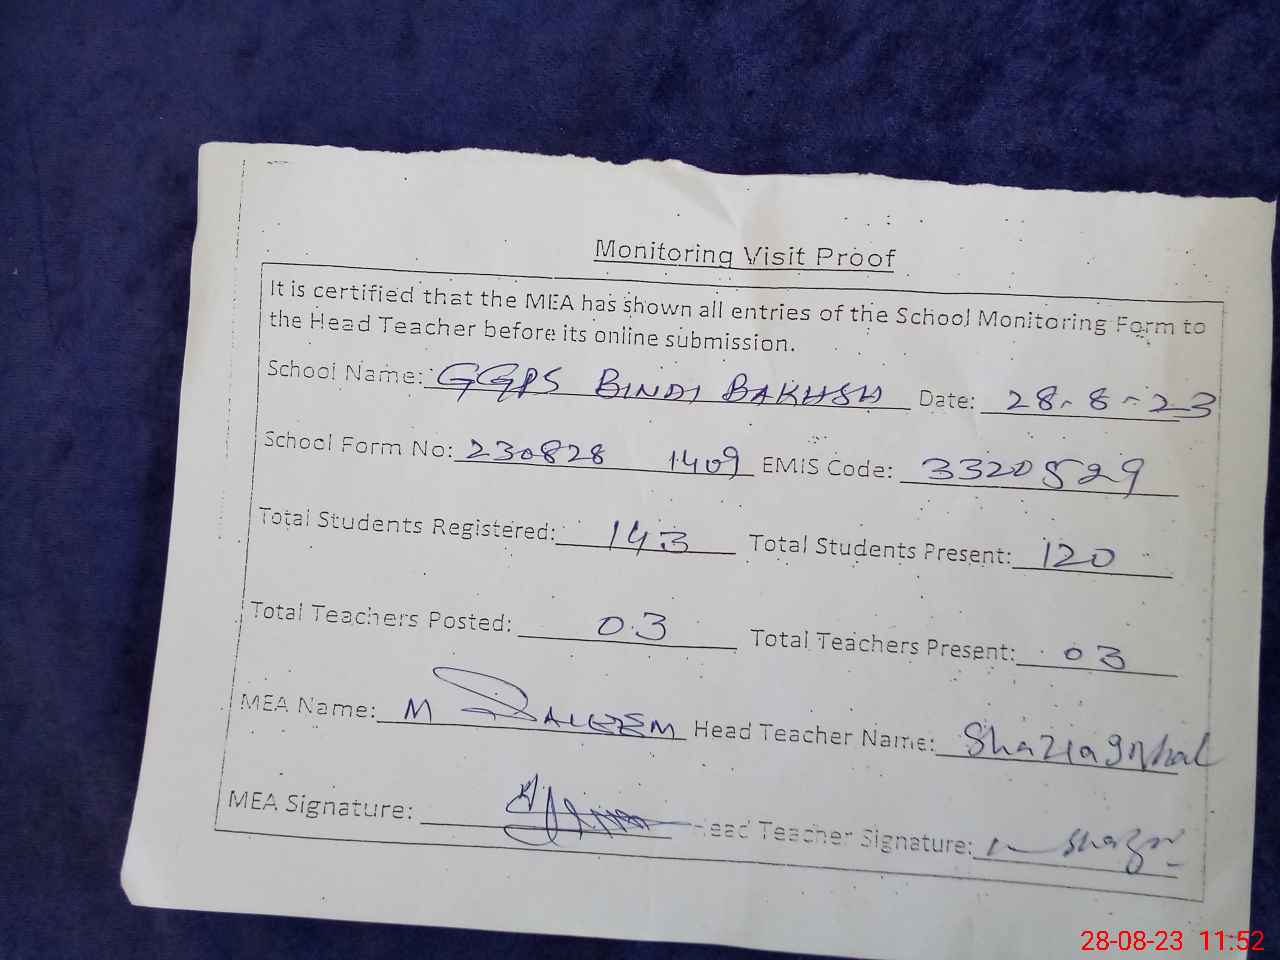 Monitoring Visit Proof
It is certified that the MEA has shown all entries of the School Monitoring Form to
the Head Teacher before its online submission.
School Name: GGPS BINDI BAKHSH Date: 28-8-23
School Form No: 230828 1409 EMIS Code: 3320529
Total Students Registered: 143 Total Students Present: 120
Total Teachers Posted: 03 Total Teachers Present: 03
MEA Name: M SALEEM Head Teacher Name: Shazia Iqbal
MEA Signature: Head Teacher Signature:
28-08-23 11:52